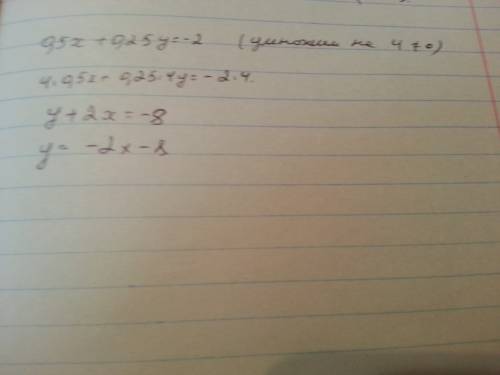 0,5x + 0,25y = -2 (умножим на 4 ≠ 0)
4·0,5x + 0,25·4y = -2·4.
y + 2x = -8
y = -2x - 8